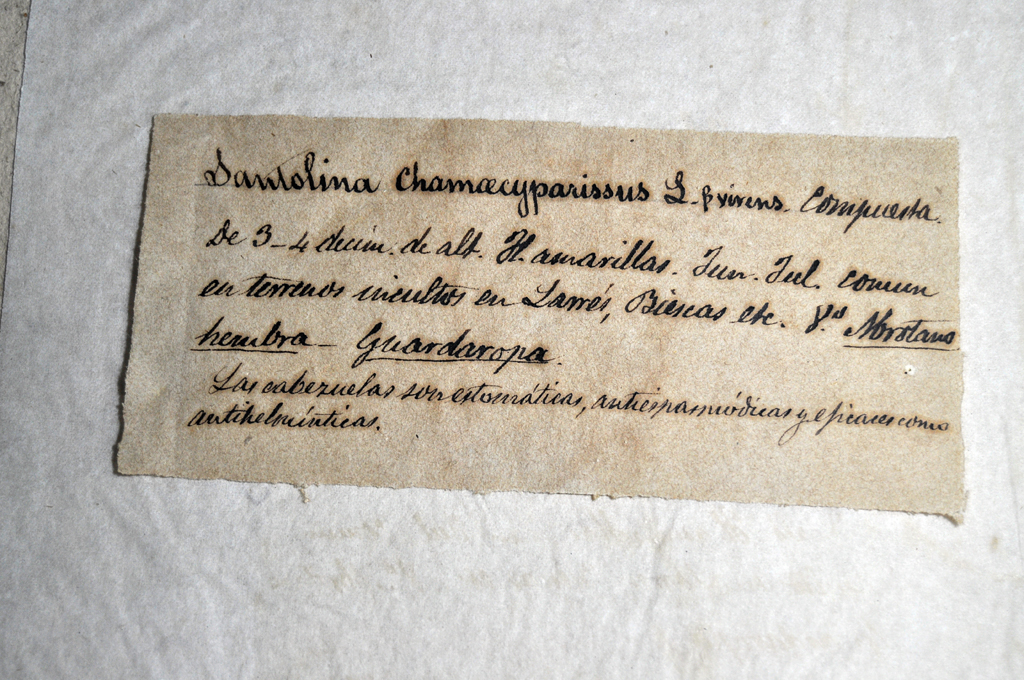 Santolina Chamæcyparissus L. β virens. Compuesta.
De 3-4 decim. de alt. Fl. amarillas. Jun. Jul. comun
en terrenos incultos en Larrés, Biescas etc. V.º Abrotano
hembra - Guardaropa.
Las cabezuelas son estomáticas, antiespasmódicas y eficaces como
antihelmínticas.